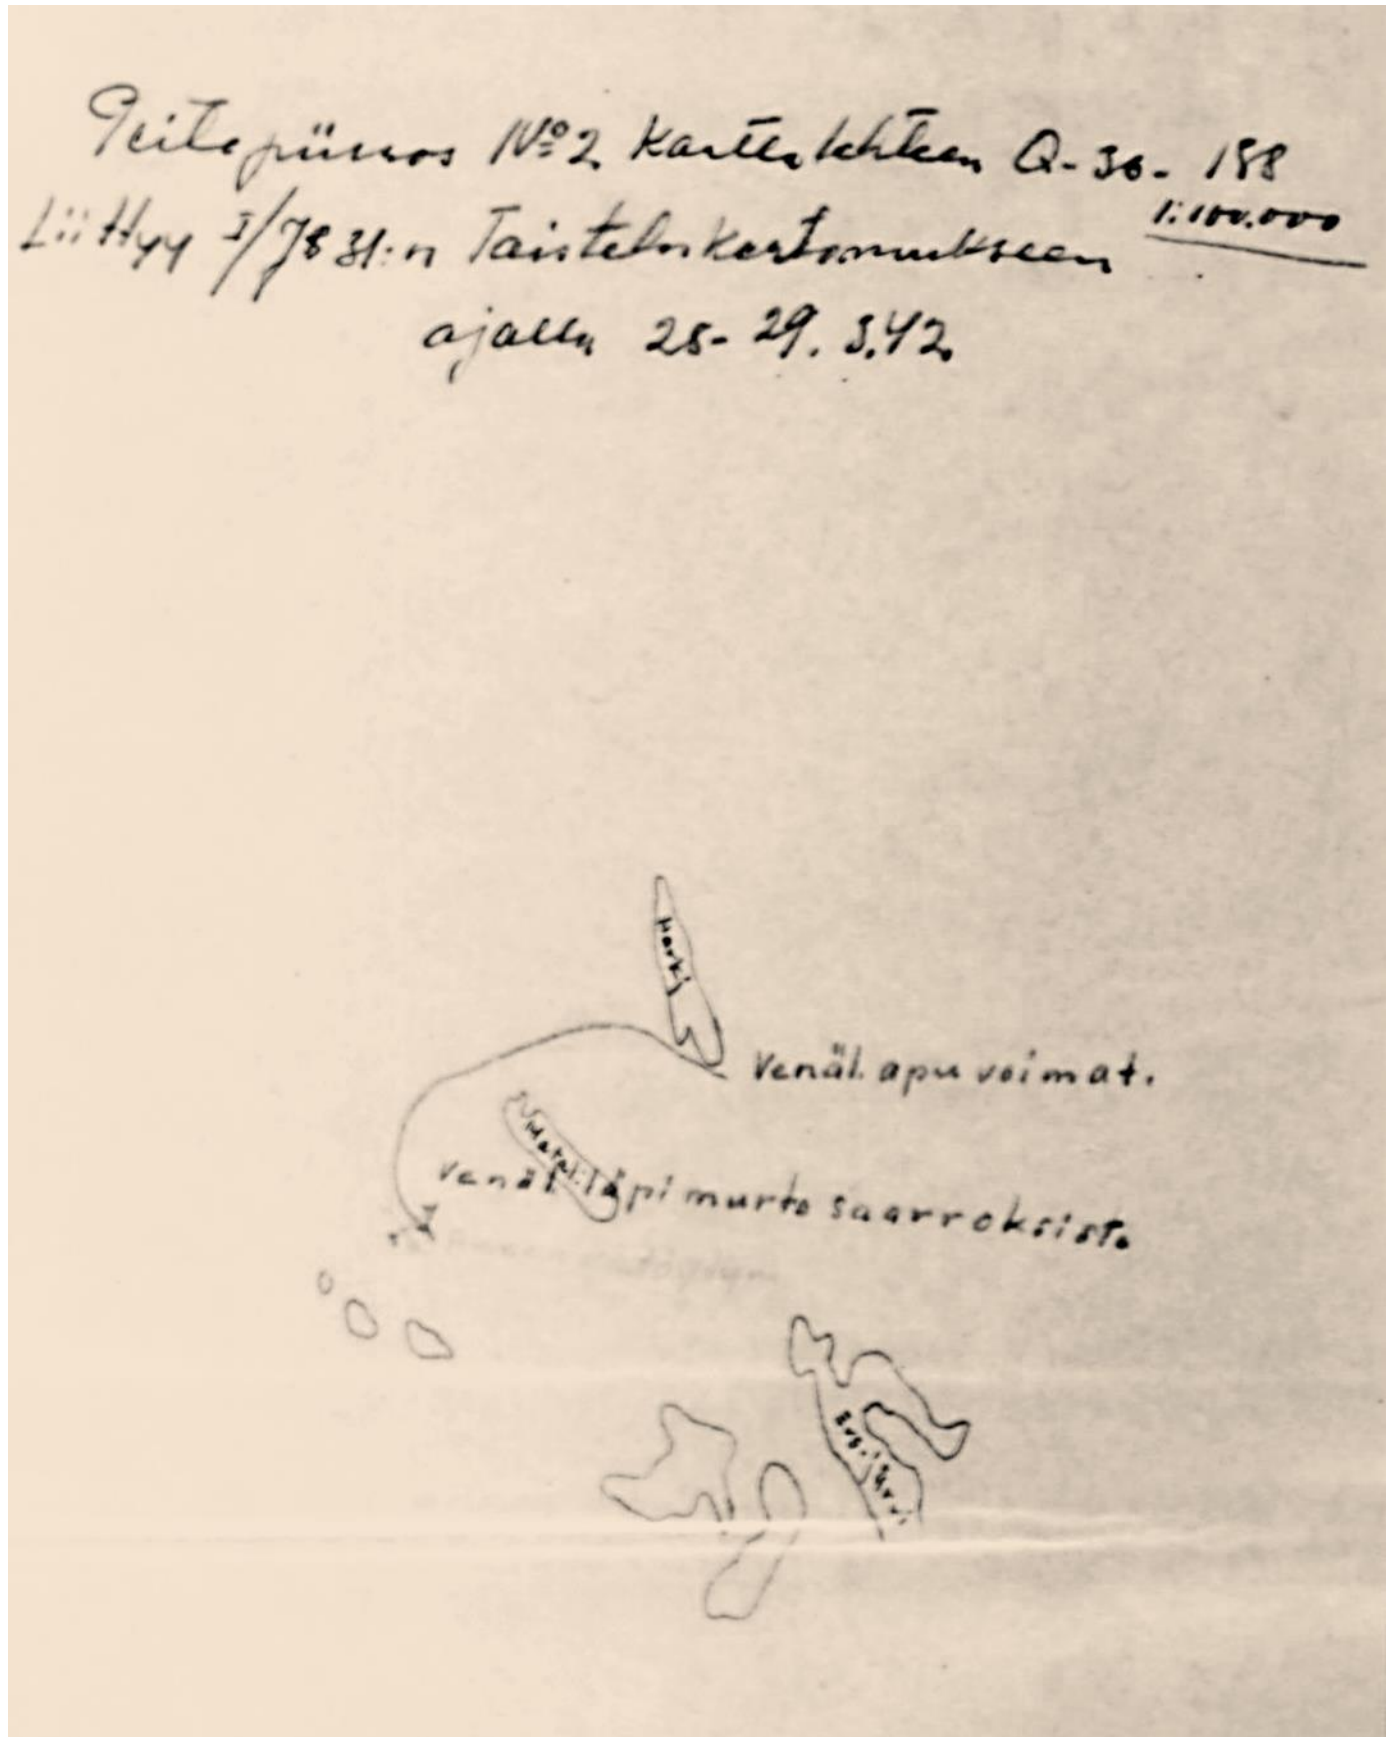 Peitepiirros Nº2 Karttalehteen Q-36-
1:100.000
Liittyy I/JR 31:n Taistelukertomukseen
ajalla 25-29.3.42.
Harkj
Venäl. apuvoimat.
Venäl. läpimurto saarroksista